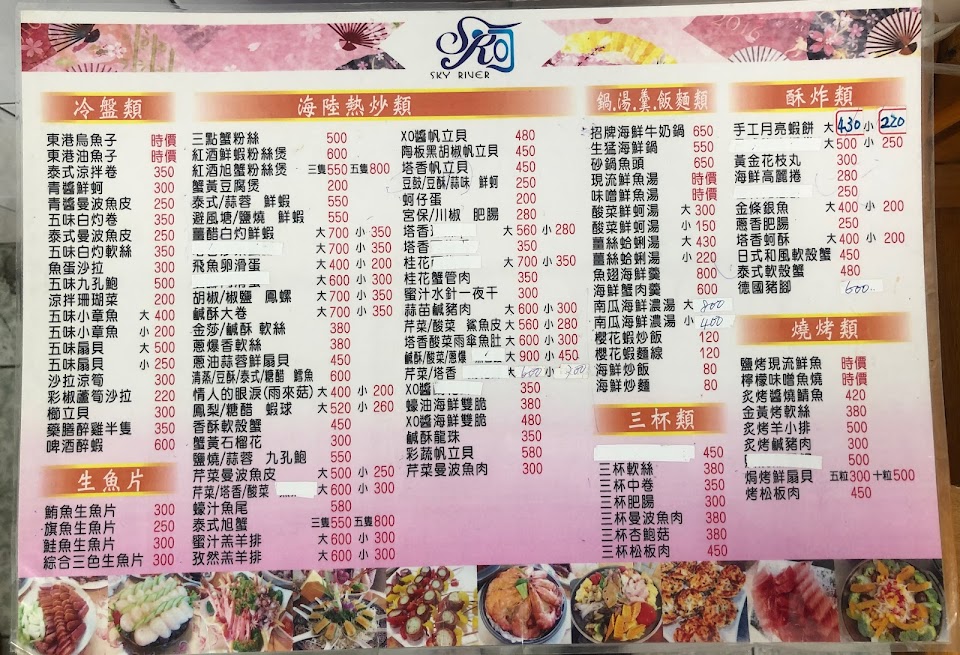 SKY RIVER
冷盤類
東港烏魚子 時價
東港油魚子 時價
泰式涼拌卷 350
青醬鮮蚵 300
青醬曼波魚皮 250
五味白灼卷 350
泰式曼波魚皮 250
五味白灼軟絲 350
魚蛋沙拉 300
五味九孔鮑 500
涼拌珊瑚菜 200
五味小章魚 大 400
五味小章魚 小 200
五味扇貝 大 500
五味扇貝 小 250
沙拉涼筍 300
彩椒蘆筍沙拉 220
櫛立貝 300
藥膳醉雞半隻 350
啤酒醉蝦 600
生魚片
鮪魚生魚片 300
旗魚生魚片 250
鮭魚生魚片 300
綜合三色生魚片 300
海陸熱炒類
三點蟹粉絲 500
紅酒鮮蝦粉絲煲 600
紅酒旭蟹粉絲煲 三隻550 五隻800
蟹黃豆腐煲 200
泰式/蒜蓉 鮮蝦 550
避風塘/鹽燒 鮮蝦 550
薑醋白灼鮮蝦 大700 小 350
飛魚卵滑蛋 大700 小 350
大600 小 300
胡椒/椒鹽 鳳螺 大700 小 350
鹹酥大卷 大700 小 350
金莎/鹹酥 軟絲 380
蔥爆香軟絲 350
蔥油蒜蓉鮮扇貝 450
清蒸/豆酥/泰式/糖醋 鱈魚 600
情人的眼淚(雨來菇) 大400 小 200
鳳梨/糖醋 蝦球 大520 小 260
香酥軟殼蟹 450
蟹黃石榴花 300
鹽燒/蒜蓉 九孔鮑 550
芹菜曼波魚皮 大500 小 250
芹菜/塔香/酸菜 大600 小 300
蠔汁魚尾 580
泰式旭蟹 三隻550 五隻800
蜜汁羔羊排 大600 小 300
孜然羔羊排 大600 小 300
XO醬帆立貝 480
陶板黑胡椒帆立貝 450
塔香帆立貝 450
豆豉/豆酥/蒜味 鮮蚵 250
蚵仔蛋 200
宮保/川椒 肥腸 280
塔香 大560 小 280
塔香 350
桂花 大700 小 350
桂花蟹管肉 350
蜜汁水針一夜干 300
蒜苗鹹豬肉 大600 小 300
芹菜/酸菜 鯊魚皮 大560 小 280
塔香酸菜雨傘魚肚 大600 小 300
鹹酥/酸菜/蔥爆 大900 小 450
芹菜/塔香 大 小
XO醬 350
蠔油海鮮雙脆 380
XO醬海鮮雙脆 480
鹹酥龍珠 350
彩蔬帆立貝 580
芹菜曼波魚肉 300
鍋.湯.羹.飯麵類
招牌海鮮牛奶鍋 650
生猛海鮮鍋 550
砂鍋魚頭 650
現流鮮魚湯 時價
味噌鮮魚湯 時價
酸菜鮮蚵湯 大300
酸菜鮮蚵湯 小150
薑絲蛤蜊湯 大430
薑絲蛤蜊湯 小220
魚翅海鮮羹 800
海鮮蟹肉羹 600
南瓜海鮮濃湯 大 800
南瓜海鮮濃湯 小 400
櫻花蝦炒飯 120
櫻花蝦麵線 120
海鮮炒飯 80
海鮮炒麵 80
三杯類
450
三杯軟絲 380
三杯中卷 350
三杯肥腸 300
三杯曼波魚肉 380
三杯杏鮑菇 380
三杯松板肉 450
酥炸類
手工月亮蝦餅 大 430 小 220
大500 小 250
黃金花枝丸 300
海鮮高麗捲 280
250
金條銀魚 大400 小 200
蔥香肥腸 250
塔香蚵酥 大400 小 200
日式和風軟殼蟹 450
泰式軟殼蟹 480
德國豬腳 600
燒烤類
鹽烤現流鮮魚 時價
檸檬味噌魚燒 時價
炙烤醬燒鯖魚 420
金黃烤軟絲 380
炙烤羊小排 500
炙烤鹹豬肉 300
500
焗烤鮮扇貝 五粒300 十粒500
烤松板肉 450